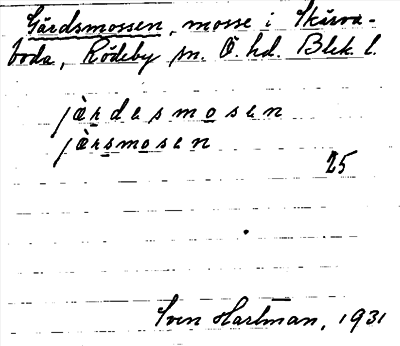 Gärdsmossen, mosse i Skärva-
boda, Rödeby sn. Ö. hd. Blek. l.
jærdesmosen
jærsmosen
25
Sven Hartman, 1931